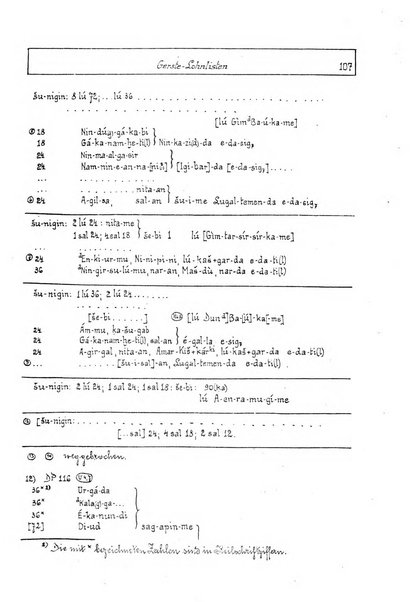 Gerste-Lohnlisten 107
šu-nigin: 8 lú 72; .. lú 36 . . . . . . . . . . . . . . . .
. . . . . . . . . . . . . . . . . . . .
[lú Gìm ᵈBa-ú-ka-me]
18 Nin-dùg-gá-ka-bi
18 Gá-ka-nam-ḫe-ti(l) Nin-ka-zi(d)-da e-da-sig,
24 Nin-ma-al-ga-sir
24 Nam-nin-e-an-na-[. . .] [Igi-bar]-da [e-da-sig,
... . . . . . . . . . .
... . . . . . . . nita-an
24 A-gil-sa, sal-an šu-i-me Lugal-temen-da e-da-sig,
šu-nigin: 2 lú 24 : nita-me
1 sal 24; 4 sal 18 še-bi 1 lú [Gìm-tar-sír-sír-ka-me]
24 ᵈEn-ki-ur-mu, Ni-ni-pi-ni, lú-kaš+gar-da e-da-ti(l)
36 ᵈNin-gir-su-lú-mu, nar-an, Maš-dù, nar-da e-da-ti(l)
šu-nigin: 1 lú 36; 2 lú 24 . . . . . .
[še-bi . . . . . .] [lú Dun ᵈ]Ba-[ú]-ka[-me]
24 Ám-mu, ka-šu-gab
24 Gá-ka-nam-ḫe-ti(l), sal-an é-gal-la e-da-ti(l)
24 A-gir-gal, nita-an, Amar-ki, lú-kaš+gar-da e-da-ti(l)
... . . . . . . . [šu-i-sa]l-an, Lugal-temen-da e-da-ti(l)
šu-nigin: 2 lú 24; 1 sal 24; 1 sal 18: še-bi: 90(ka)
lú A-en-ra-mu-gi-me
[šu-nigin: . . . . . . . . . . . . . . . . . . . .
[... sal] 24; 4 sal 13; 2 sal 12.
weggebrochen.
12) DP 116
36*¹⁾ Ur-gá-da
36* ᵈKala[g-ga-...
36* É-ka-nun-di
[72] Di-ud sag-apin-me
¹⁾ Die mit * bezeichneten Zahlen sind in Keilschriftziffern.